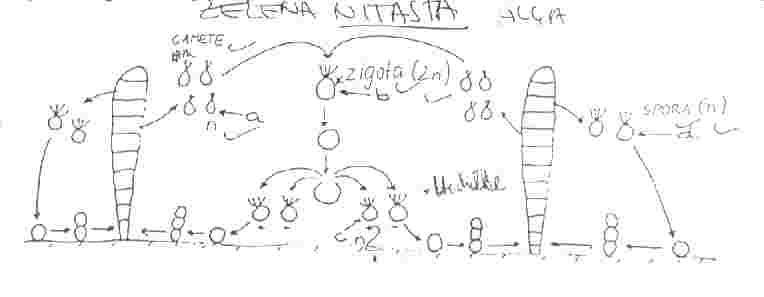 ZELENA NITASTA ALGA
GAMETE
zigota (2n)
b
a
n
SPORA (n)
d
c n?